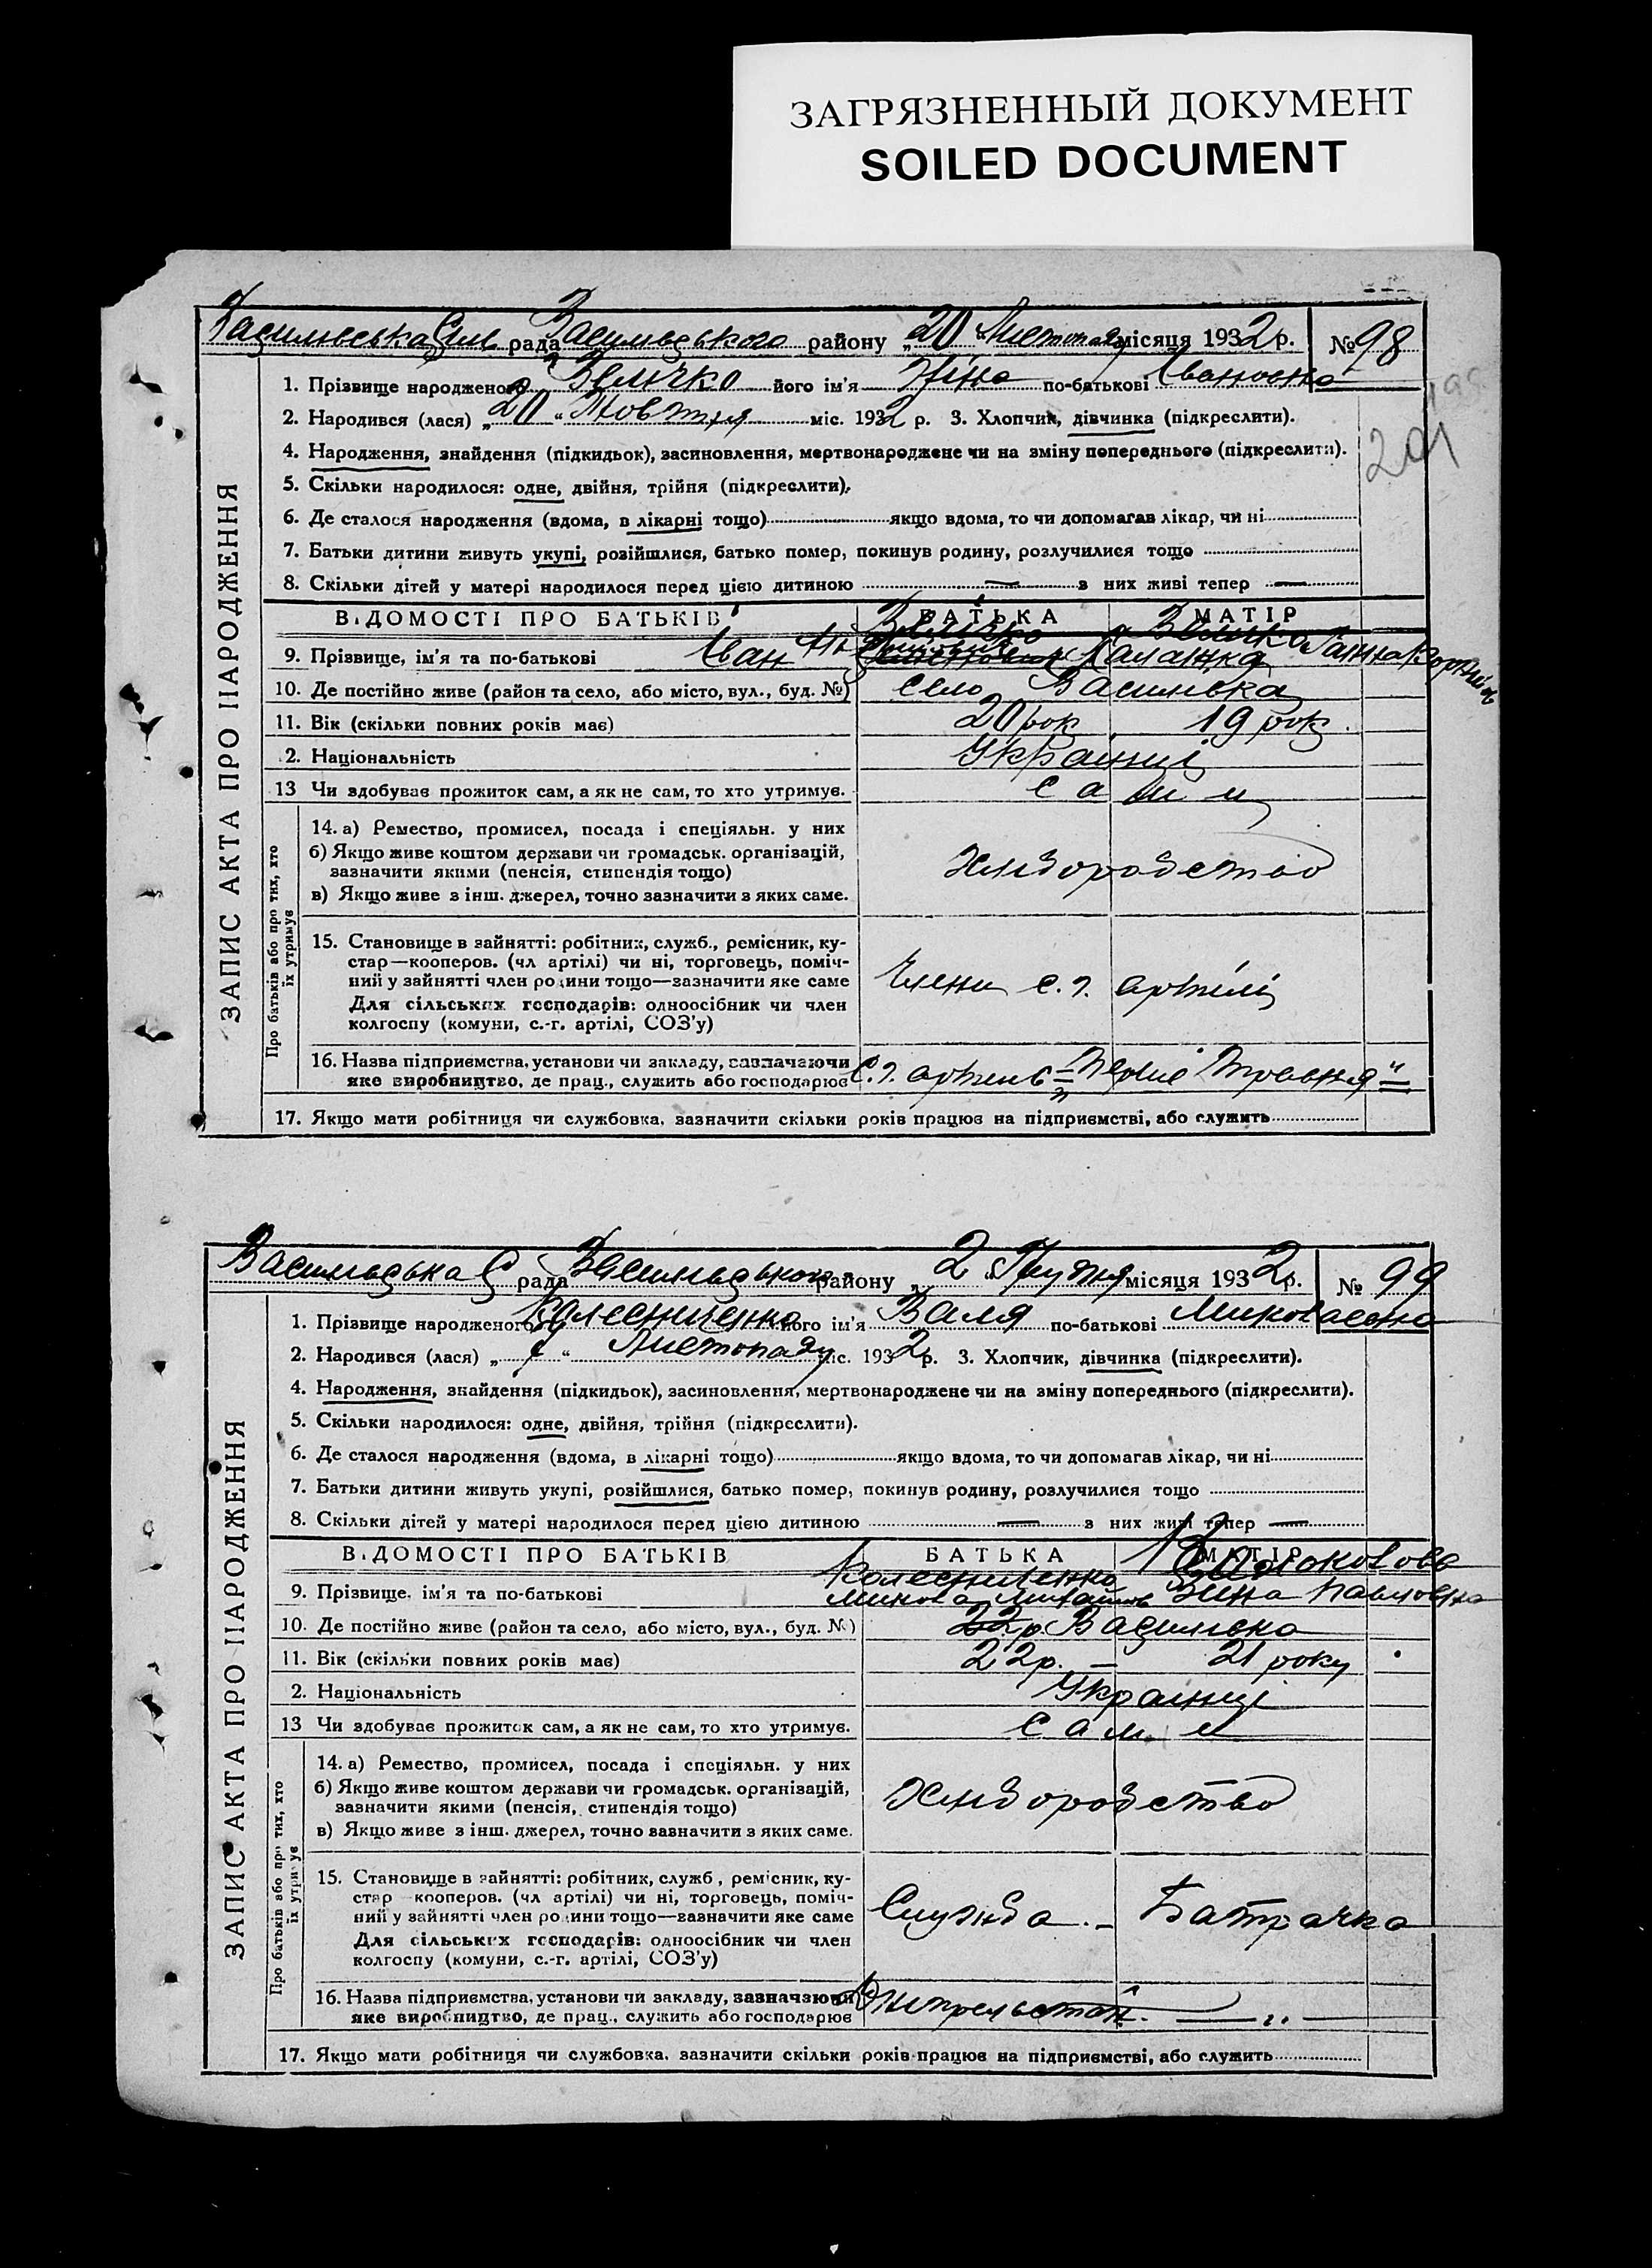 ЗАГРЯЗНЕННЫЙ ДОКУМЕНТ
SOILED DOCUMENT
Василівська Сіль рада Василівського району „20 Листопада місяця 1932 р. № 98
201
ЗАПИС АКТА ПРО НАРОДЖЕННЯ
1. Прізвище народженого Величко його ім'я Ніна по-батькові Івановна
2. Народився (лася) „20“ Жовтня міс. 1932 р. 3. Хлопчик, дівчинка (підкреслити).
4. Народження, знайдення (підкидьок), засиновлення, мертвонароджене чи на зміну попереднього (підкреслити).
5. Скільки народилося: одне, двійня, трійня (підкреслити).
6. Де сталося народження (вдома, в лікарні тощо) якщо вдома, то чи допомагав лікар, чи ні
7. Батьки дитини живуть укупі, розійшлися, батько помер, покинув родину, розлучилися тощо
8. Скільки дітей у матері народилося перед цією дитиною — з них живі тепер —
ВІДОМОСТІ ПРО БАТЬКІВ БАТЬКА МАТІР
9. Прізвище, ім'я та по-батькові Величко Іван Галина
10. Де постійно живе (район та село, або місто, вул., буд. №) село Василівка
11. Вік (скільки повних років має) 20 рок 19 рок.
2. Національність Українці
13 Чи здобуває прожиток сам, а як не сам, то хто утримує. сами
Про батьків або про тих, хто їх утримує
14. а) Ремество, промисел, посада і спеціяльн. у них
б) Якщо живе коштом держави чи громадськ. організацій,
зазначити якими (пенсія, стипендія тощо)
в) Якщо живе з інш. джерел, точно зазначити з яких саме.
Хліборобство
15. Становище в зайнятті: робітник, служб., ремісник, ку-
стар—кооперов. (чл артілі) чи ні, торговець, поміч-
ний у зайнятті член родини тощо—зазначити яке саме
Для сільських господарів: одноосібник чи член
колгоспу (комуни, с.-г. артілі, СОЗ'у)
Члени с. г. артілі
16. Назва підприємства, установи чи закладу, зазначаючи
яке виробництво, де прац., служить або господарює
С. г. артель „Перше Травня“
17. Якщо мати робітниця чи службовка, зазначити скільки років працює на підприємстві, або служить
Василівська С рада Василівського району „2“ Грудня місяця 1932 р. № 99
ЗАПИС АКТА ПРО НАРОДЖЕННЯ
1. Прізвище народженого Колесниченко його ім'я Валя по-батькові Миколаевна
2. Народився (лася) „ “ Листопаду міс. 1932 р. 3. Хлопчик, дівчинка (підкреслити).
4. Народження, знайдення (підкидьок), засиновлення, мертвонароджене чи на зміну попереднього (підкреслити).
5. Скільки народилося: одне, двійня, трійня (підкреслити).
6. Де сталося народження (вдома, в лікарні тощо) якщо вдома, то чи допомагав лікар, чи ні
7. Батьки дитини живуть укупі, розійшлися, батько помер, покинув родину, розлучилися тощо
8. Скільки дітей у матері народилося перед цією дитиною — з них живі тепер —
ВІДОМОСТІ ПРО БАТЬКІВ БАТЬКА МАТІР
9. Прізвище, ім'я та по-батькові Колесниченко Микола Михайлов Зина Павловна
10. Де постійно живе (район та село, або місто, вул., буд. №) Василівка
11. Вік (скільки повних років має) 22 р. — 21 року
2. Національність Українці
13 Чи здобуває прожиток сам, а як не сам, то хто утримує. сами
Про батьків або про тих, хто їх утримує
14. а) Ремество, промисел, посада і спеціяльн. у них
б) Якщо живе коштом держави чи громадськ. організацій,
зазначити якими (пенсія, стипендія тощо)
в) Якщо живе з інш. джерел, точно зазначити з яких саме.
Хліборобство
15. Становище в зайнятті: робітник, служб., ремісник, ку-
стар—кооперов. (чл артілі) чи ні, торговець, поміч-
ний у зайнятті член родини тощо—зазначити яке саме
Для сільських господарів: одноосібник чи член
колгоспу (комуни, с.-г. артілі, СОЗ'у)
Служба. – Батрачка
16. Назва підприємства, установи чи закладу, зазначаючи
яке виробництво, де прац., служить або господарює
17. Якщо мати робітниця чи службовка, зазначити скільки років працює на підприємстві, або служить